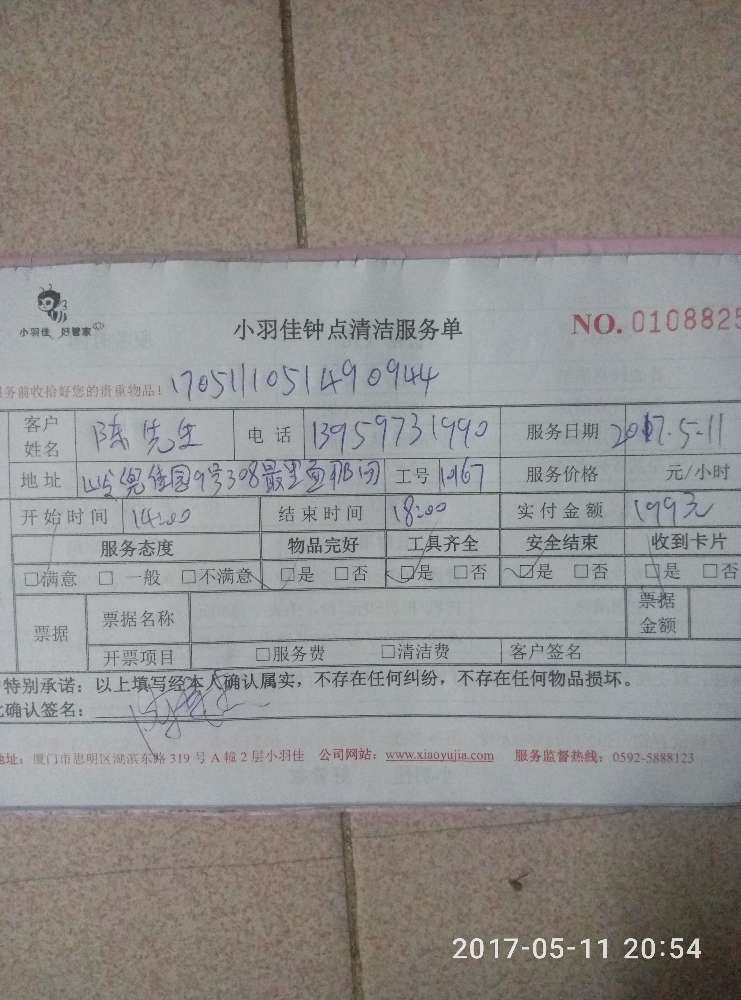 小羽佳 好管家
小羽佳钟点清洁服务单
NO. 0108825
务前收拾好您的贵重物品！ 1705111051490944
客户姓名 陈先生 电话 13959731990 服务日期 2017.5.11
地址 佳园9号308最里面那间 工号 1067 服务价格 元/小时
开始时间 14:00 结束时间 18:00 实付金额 199元
服务态度 物品完好 工具齐全 安全结束 收到卡片
□满意 □一般 □不满意 □是 □否 □是 □否 □是 □否 □是 □否
票据 票据名称 票据金额
开票项目 □服务费 □清洁费 客户签名
特别承诺：以上填写经本人确认属实，不存在任何纠纷，不存在任何物品损坏。
确认签名：
地址：厦门市思明区湖滨东路319号A幢2层小羽佳 公司网站：www.xiaoyujia.com 服务监督热线：0592-5888123
2017-05-11 20:54